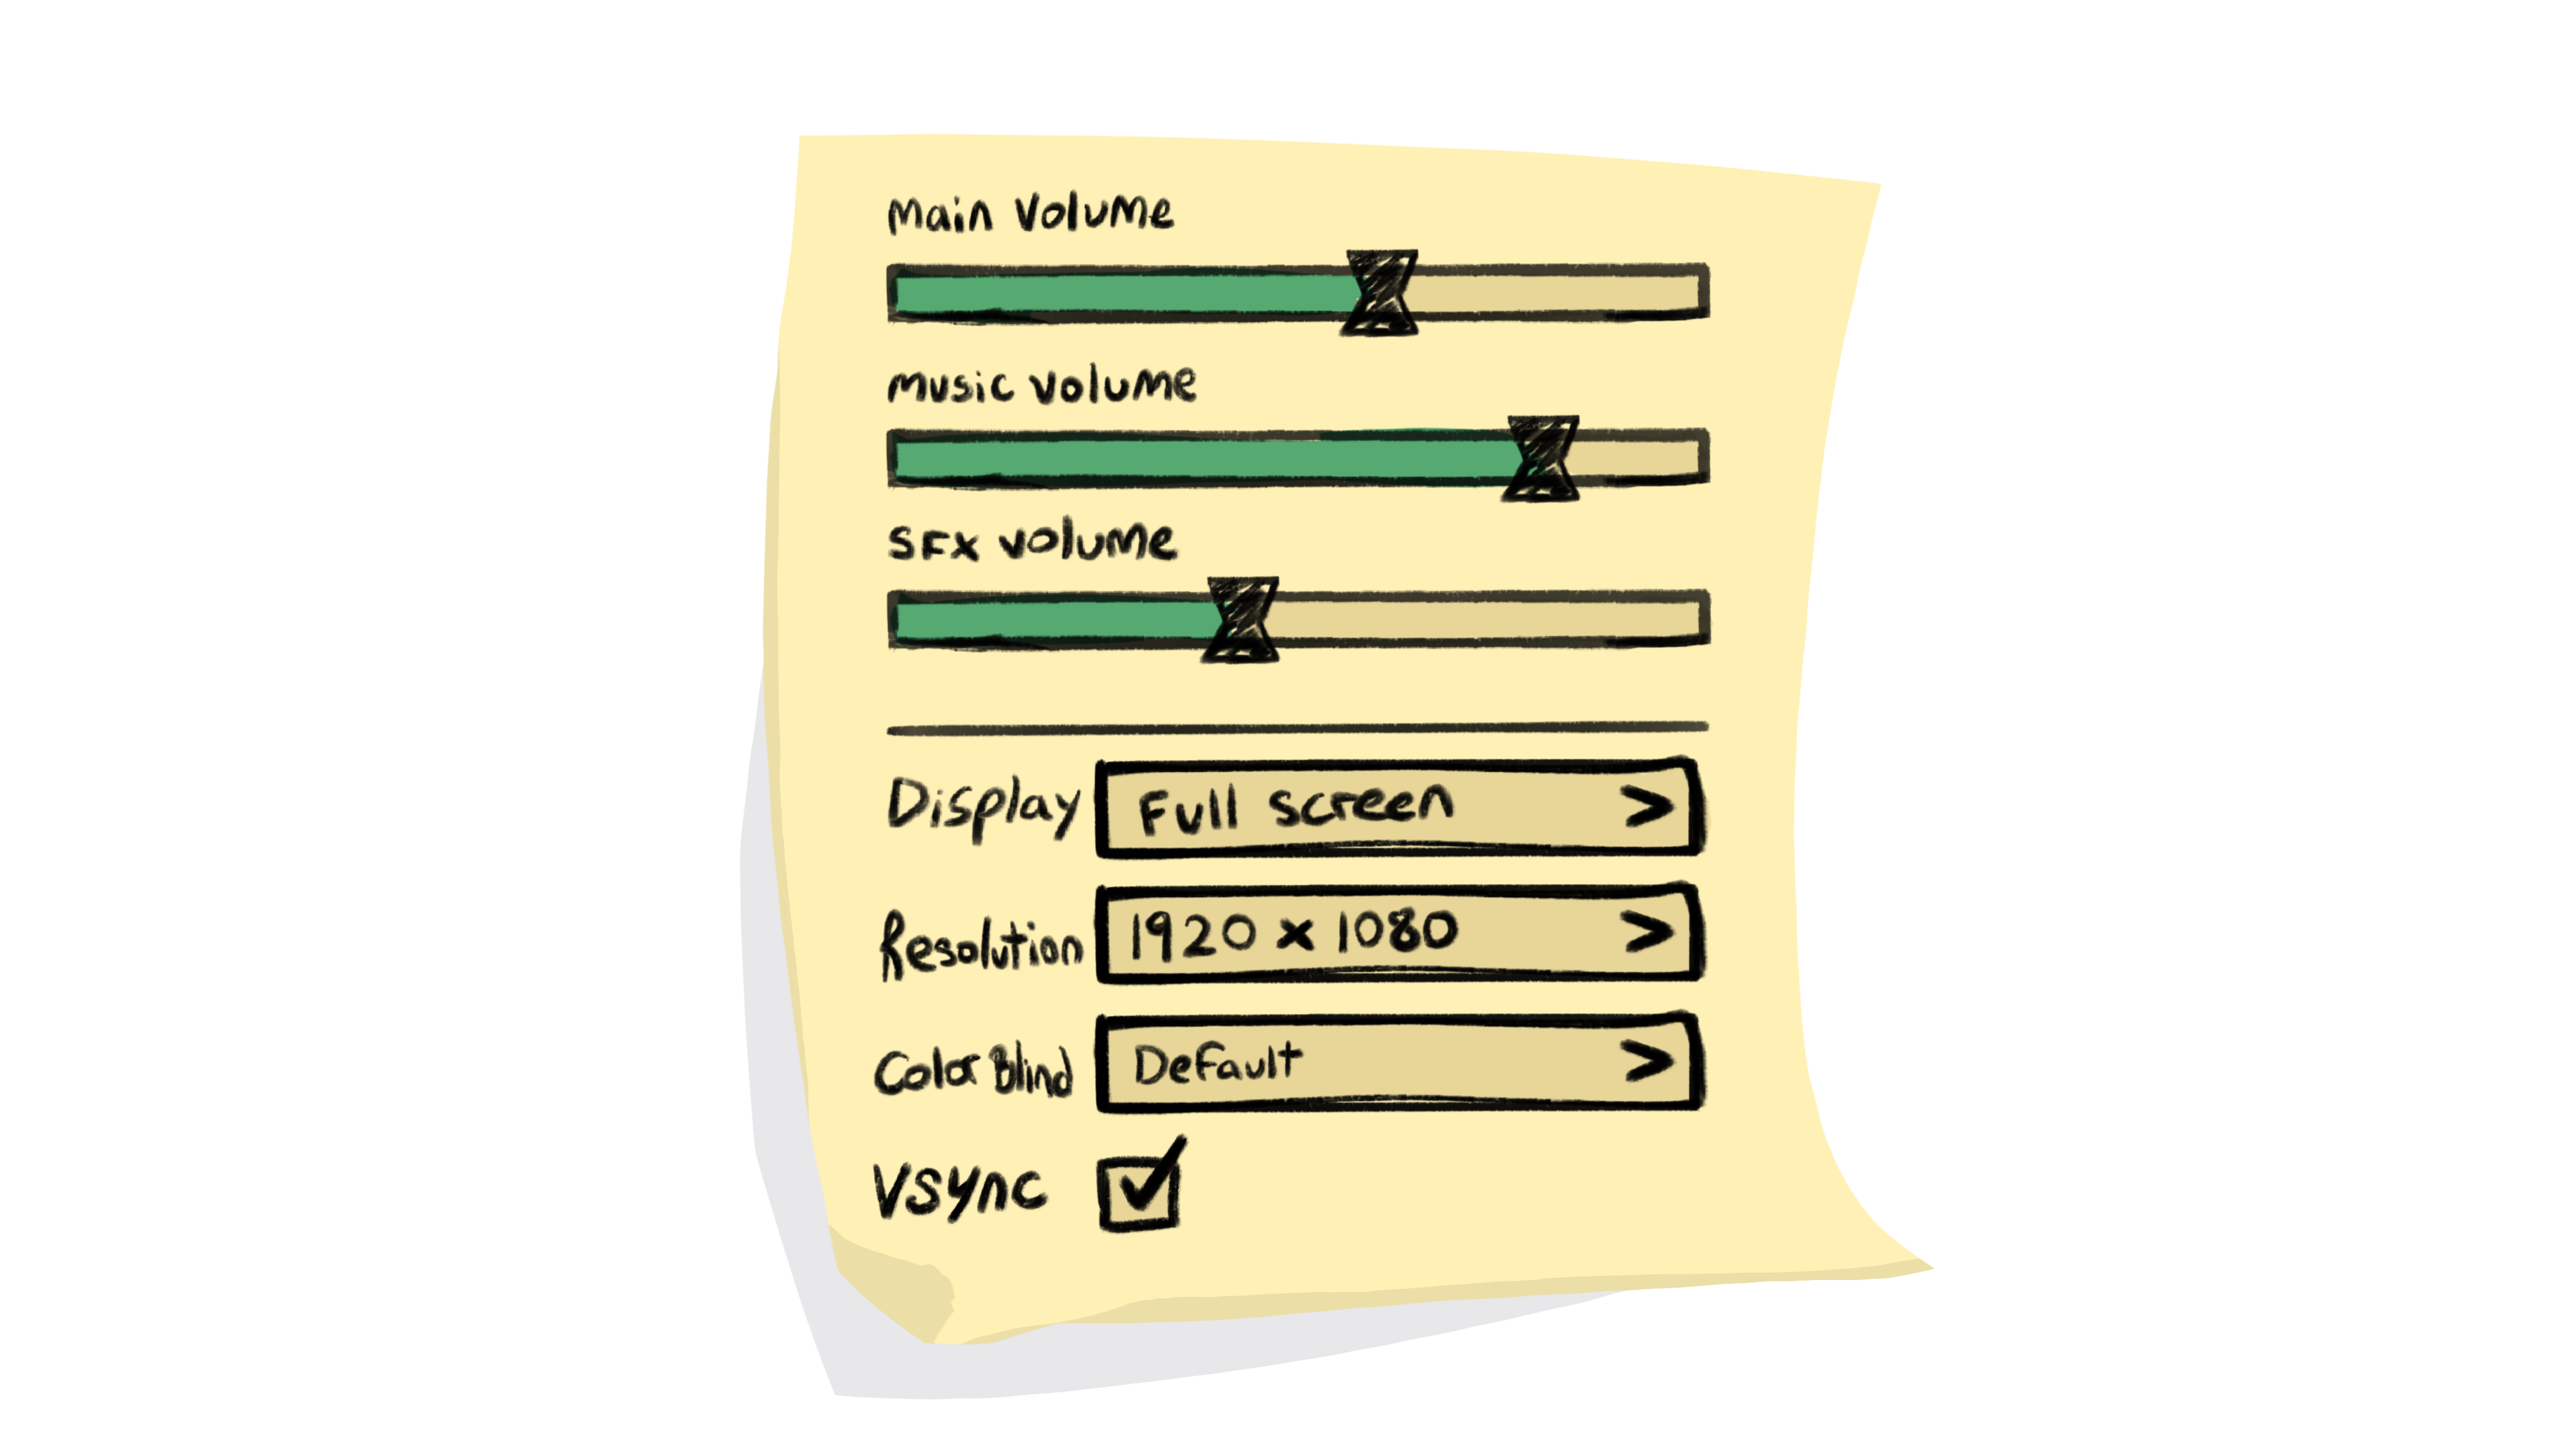 Main Volume
Music Volume
SFX Volume
Display Full Screen >
Resolution 1920 x 1080 >
Color Blind Default >
VSync